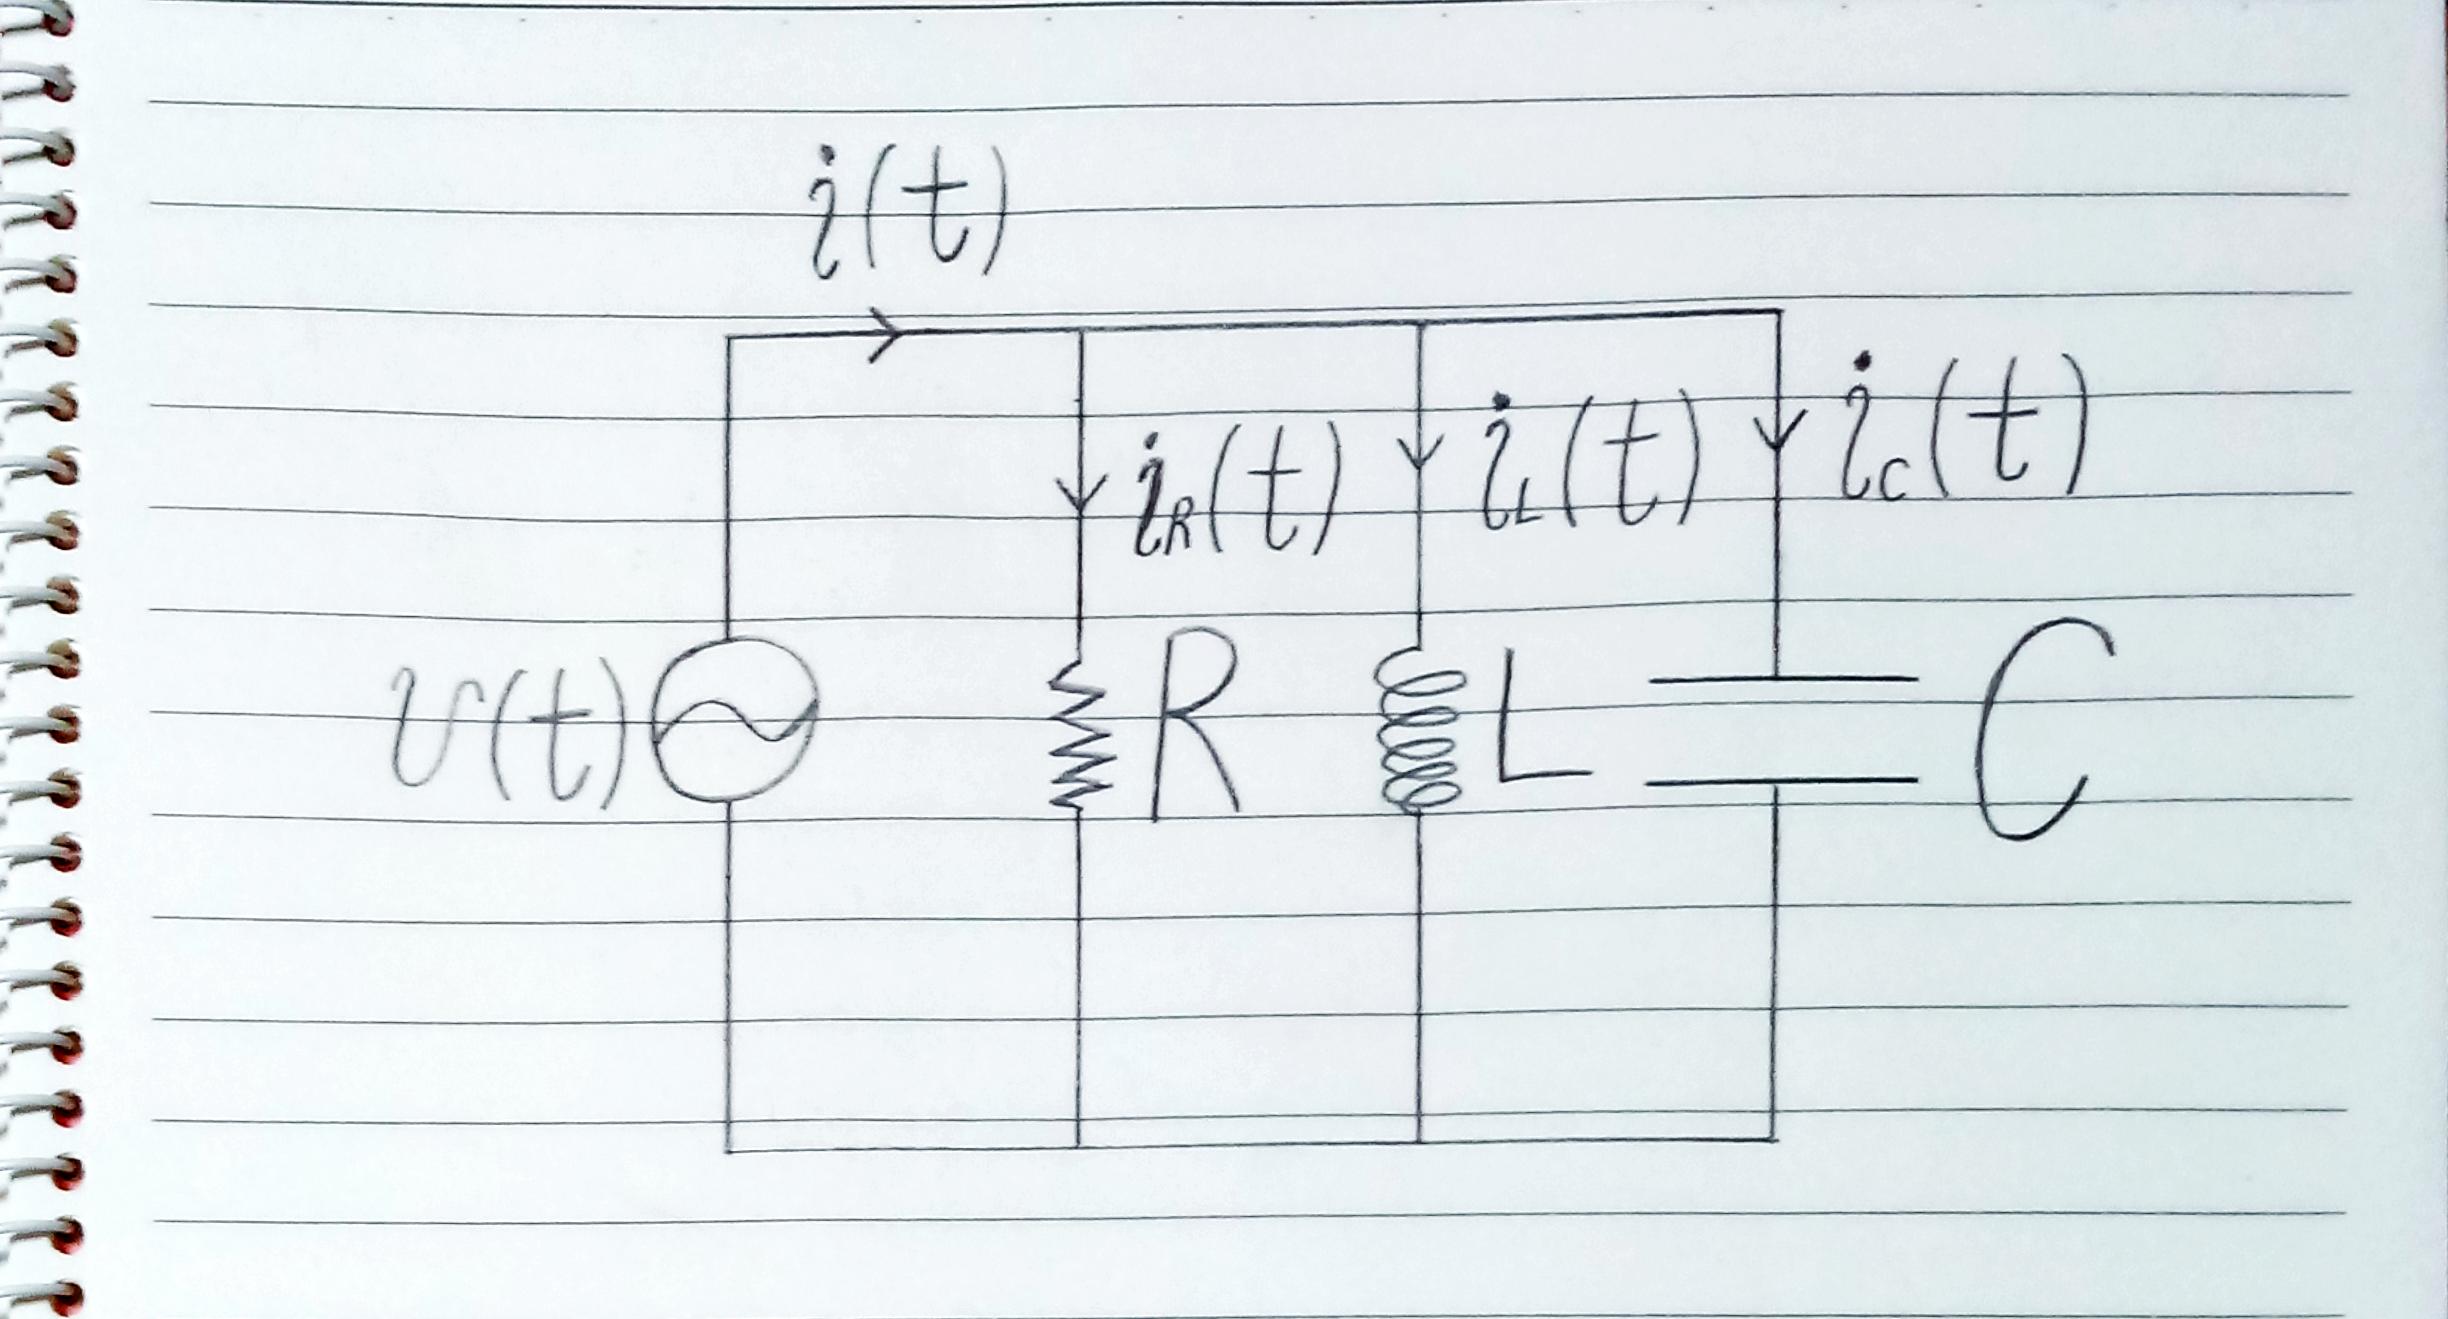 i(t)
i_R(t)
i_L(t)
i_C(t)
v(t)
R
L
C